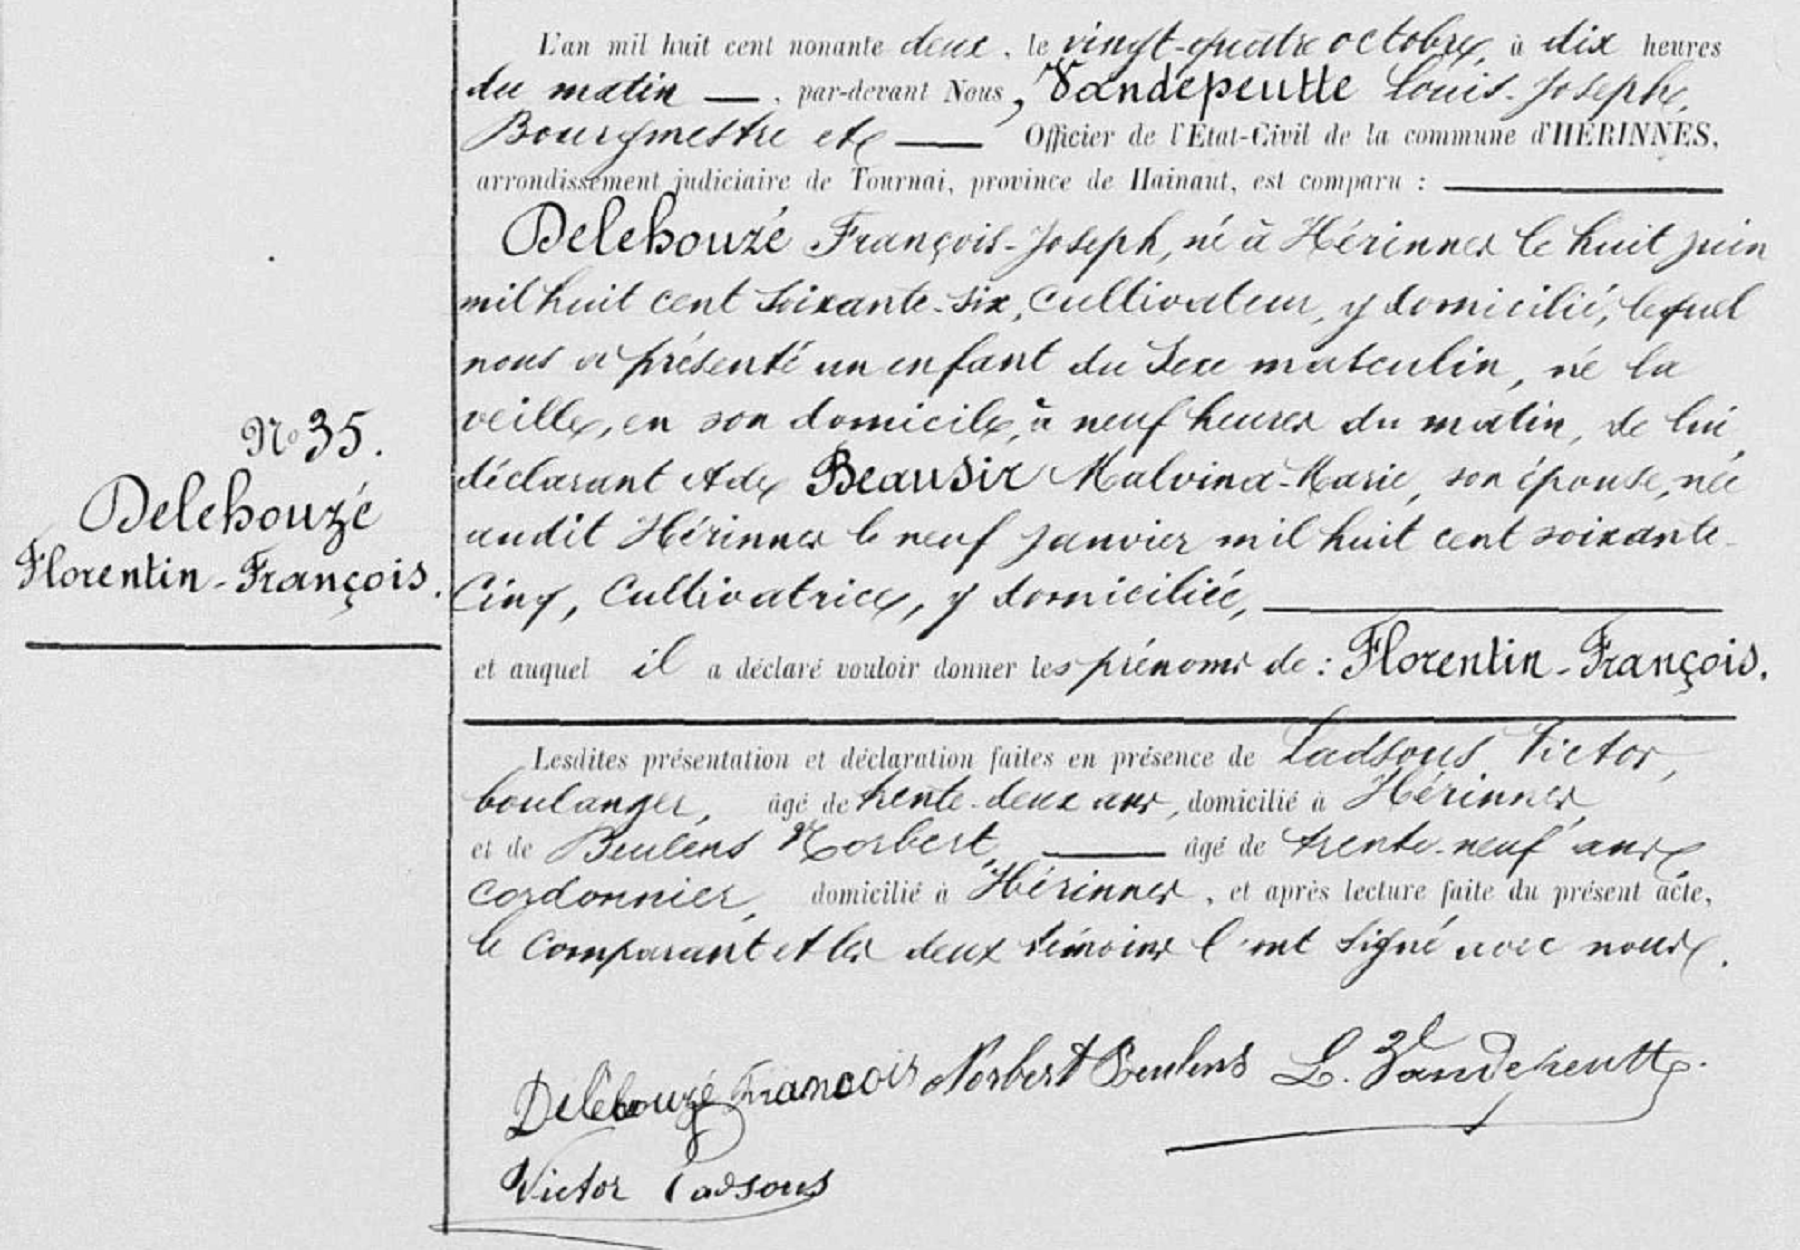 L'an mil huit cent nonante deux, le vingt-quatre octobre, à dix heures
du matin —, par-devant Nous, Vandepeutte Louis-Joseph,
Bourgmestre etc — Officier de l'État-Civil de la commune d'HÉRINNES,
arrondissement judiciaire de Tournai, province de Hainaut, est comparu : —
Delehouzé François-Joseph, né à Hérinnes le huit juin
mil huit cent soixante-six, cultivateur, y domicilié, lequel
nous a présenté un enfant du sexe masculin, né la
veille, en son domicile, à neuf heures du matin, de lui,
déclarant et de Beausir Malvina-Marie, son épouse, née
audit Hérinnes le neuf janvier mil huit cent soixante-
cinq, cultivatrice, y domiciliée, —
et auquel il a déclaré vouloir donner les prénoms de : Florentin-François.
No 35.
Delehouzé
Florentin-François.
Lesdites présentation et déclaration faites en présence de Ladsous Victor,
boulanger, âgé de trente-deux ans, domicilié à Hérinnes,
et de Beulens Norbert, — âgé de trente-neuf ans,
cordonnier, domicilié à Hérinnes, et après lecture faite du présent acte,
le comparant et les deux témoins l'ont signé avec nous.
Delehouzé François Norbert Beulens L. Vandepeutte.
Victor Ladsous